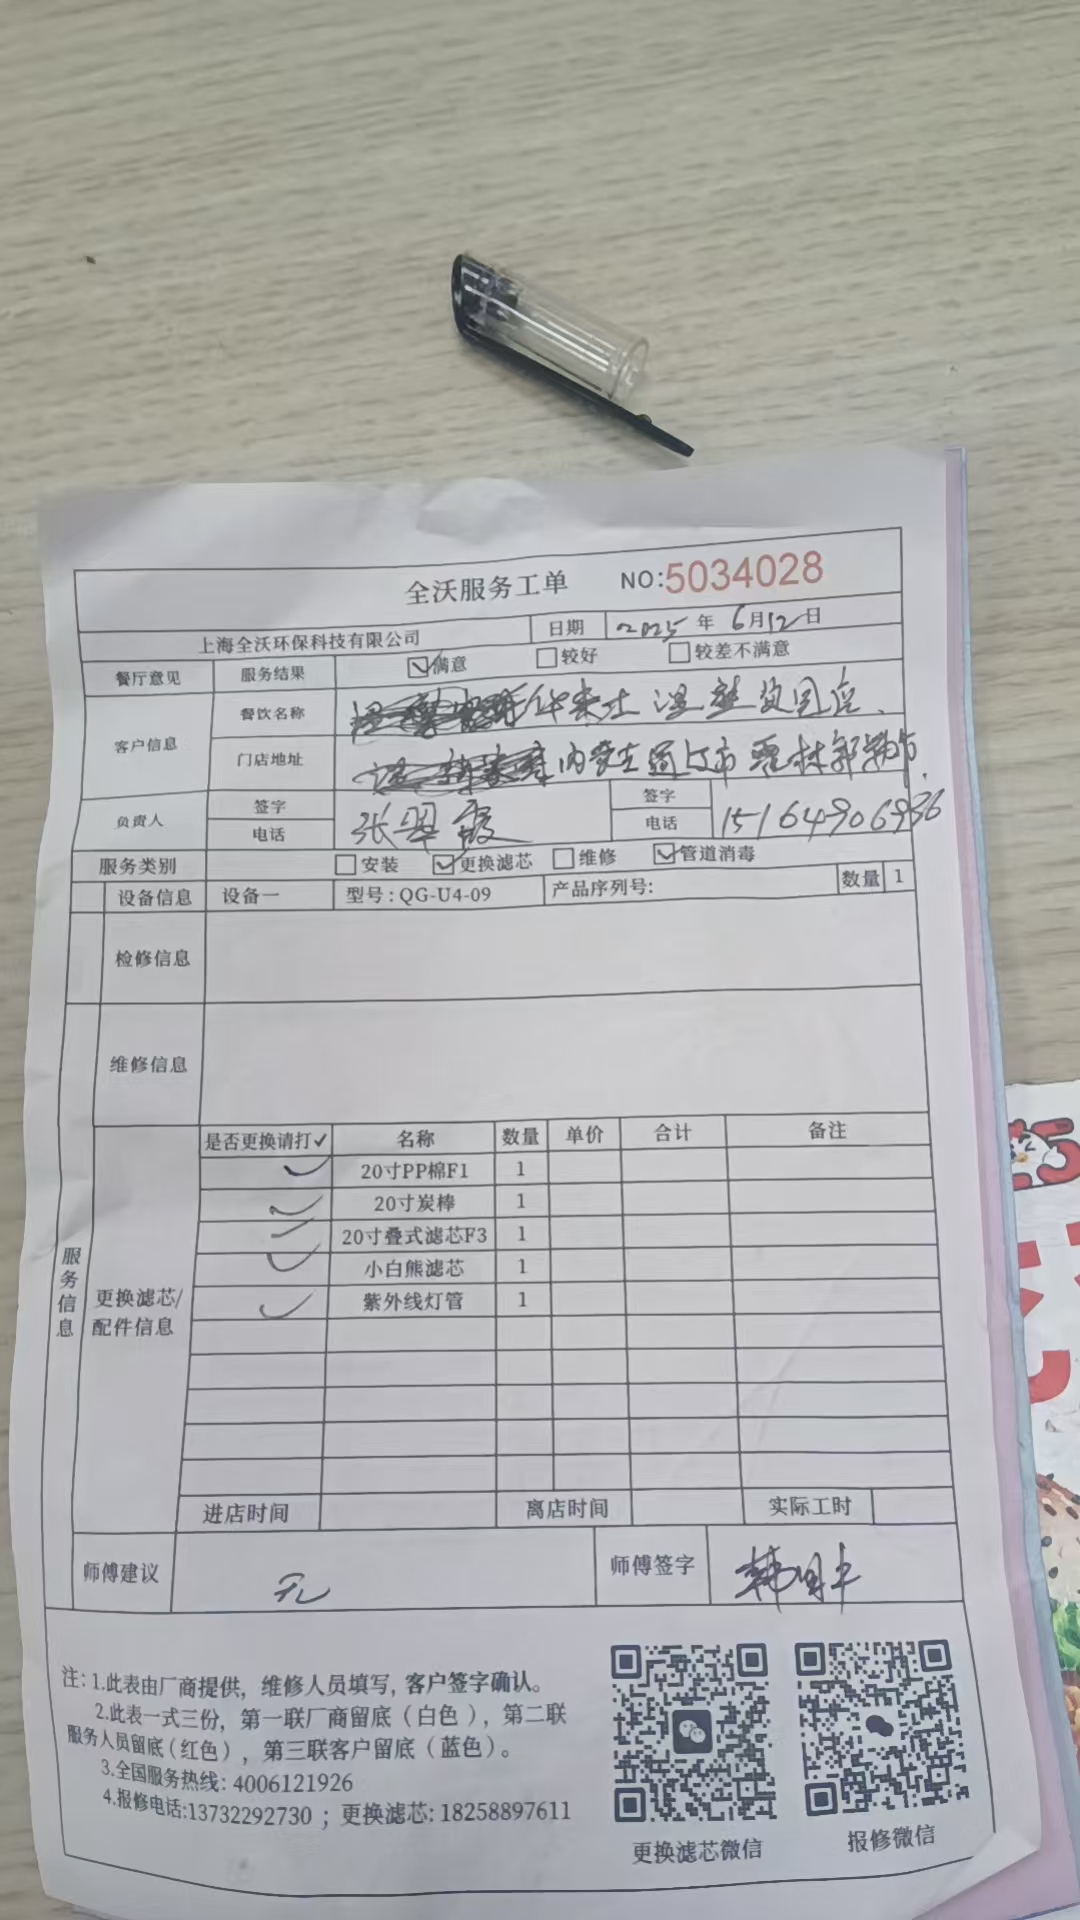 全沃服务工单 NO:5034028
上海全沃环保科技有限公司 日期 2025年6月12日
餐厅意见 服务结果 ☑满意 □较好 □较差不满意
客户信息 餐饮名称 华莱士
门店地址 内蒙古通辽市霍林郭勒市
负责人 签字 电话 张翠霞 签字 电话 15164906936
服务类别 □安装 ☑更换滤芯 □维修 ☑管道消毒
设备信息 设备一 型号:QG-U4-09 产品序列号: 数量 1
检修信息
维修信息
服务信息
更换滤芯/配件信息
是否更换请打✓ 名称 数量 单价 合计 备注
✓ 20寸PP棉F1 1
✓ 20寸炭棒 1
✓ 20寸叠式滤芯F3 1
✓ 小白熊滤芯 1
✓ 紫外线灯管 1
进店时间 离店时间 实际工时
师傅建议 无 师傅签字
注:1.此表由厂商提供,维修人员填写,客户签字确认。
2.此表一式三份,第一联厂商留底(白色),第二联
服务人员留底(红色),第三联客户留底(蓝色)。
3.全国服务热线:4006121926
4.报修电话:13732292730;更换滤芯:18258897611
更换滤芯微信 报修微信